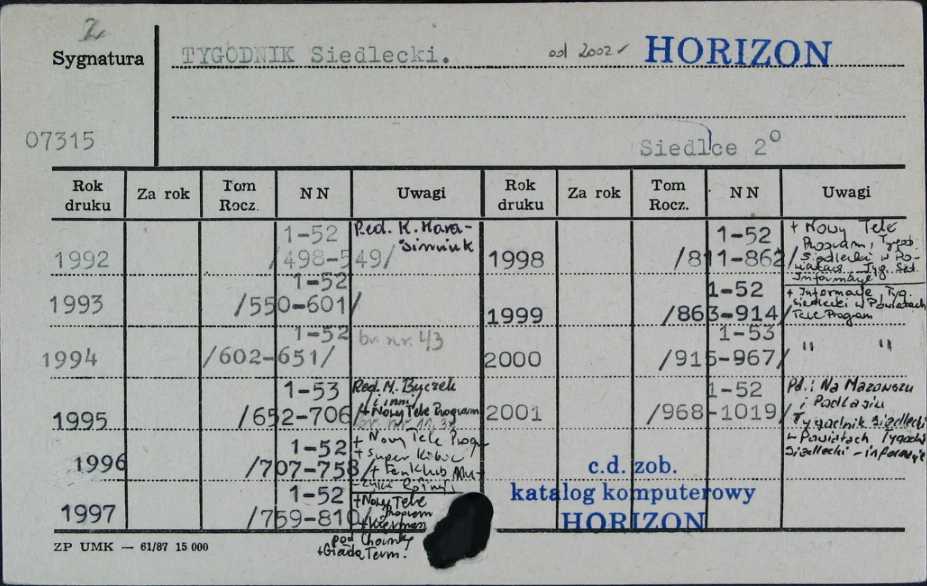 2
Sygnatura
TYGODNIK Siedlecki.
od 2002
HORIZON
07315
Siedlce 2°
Rok druku
Za rok
Tom Rocz.
NN
Uwagi
Rok druku
Za rok
Tom Rocz.
NN
Uwagi
1992 1-52 /498-549/ Red. K. Hara-
1993 1-52 /550-601/
1994 1-52 /602-651/ br. nr. 43
1995 1-53 /652-706/ Red. M. Byczek
/i inni/
+ Nowy Tele Program
1996 1-52 /707-758/ + Nowy Tele Progr
+ Super
+ Fan Klub Mu-
1997 1-52 /759-810/ + Nowy Tele
Program
pod Choinkę
+ Giełda Term.
1998 1-52 /811-862/ + Nowy Tele
Program, Tygod.
Siedlecki w Po-
Informacje
1999 1-52 /863-914/ + Informacje, Tyg.
Siedlecki w Powiatach
Tele Program
2000 1-53 /915-967/ " "
2001 1-52 /968-1019/ Pd.: Na Mazowszu
i Podlasiu
Tygodnik Siedlecki
w Powiatach Tygodnik
Siedlecki - informacje
c.d. zob.
katalog komputerowy
HORIZON
ZP UMK — 61/87 15 000